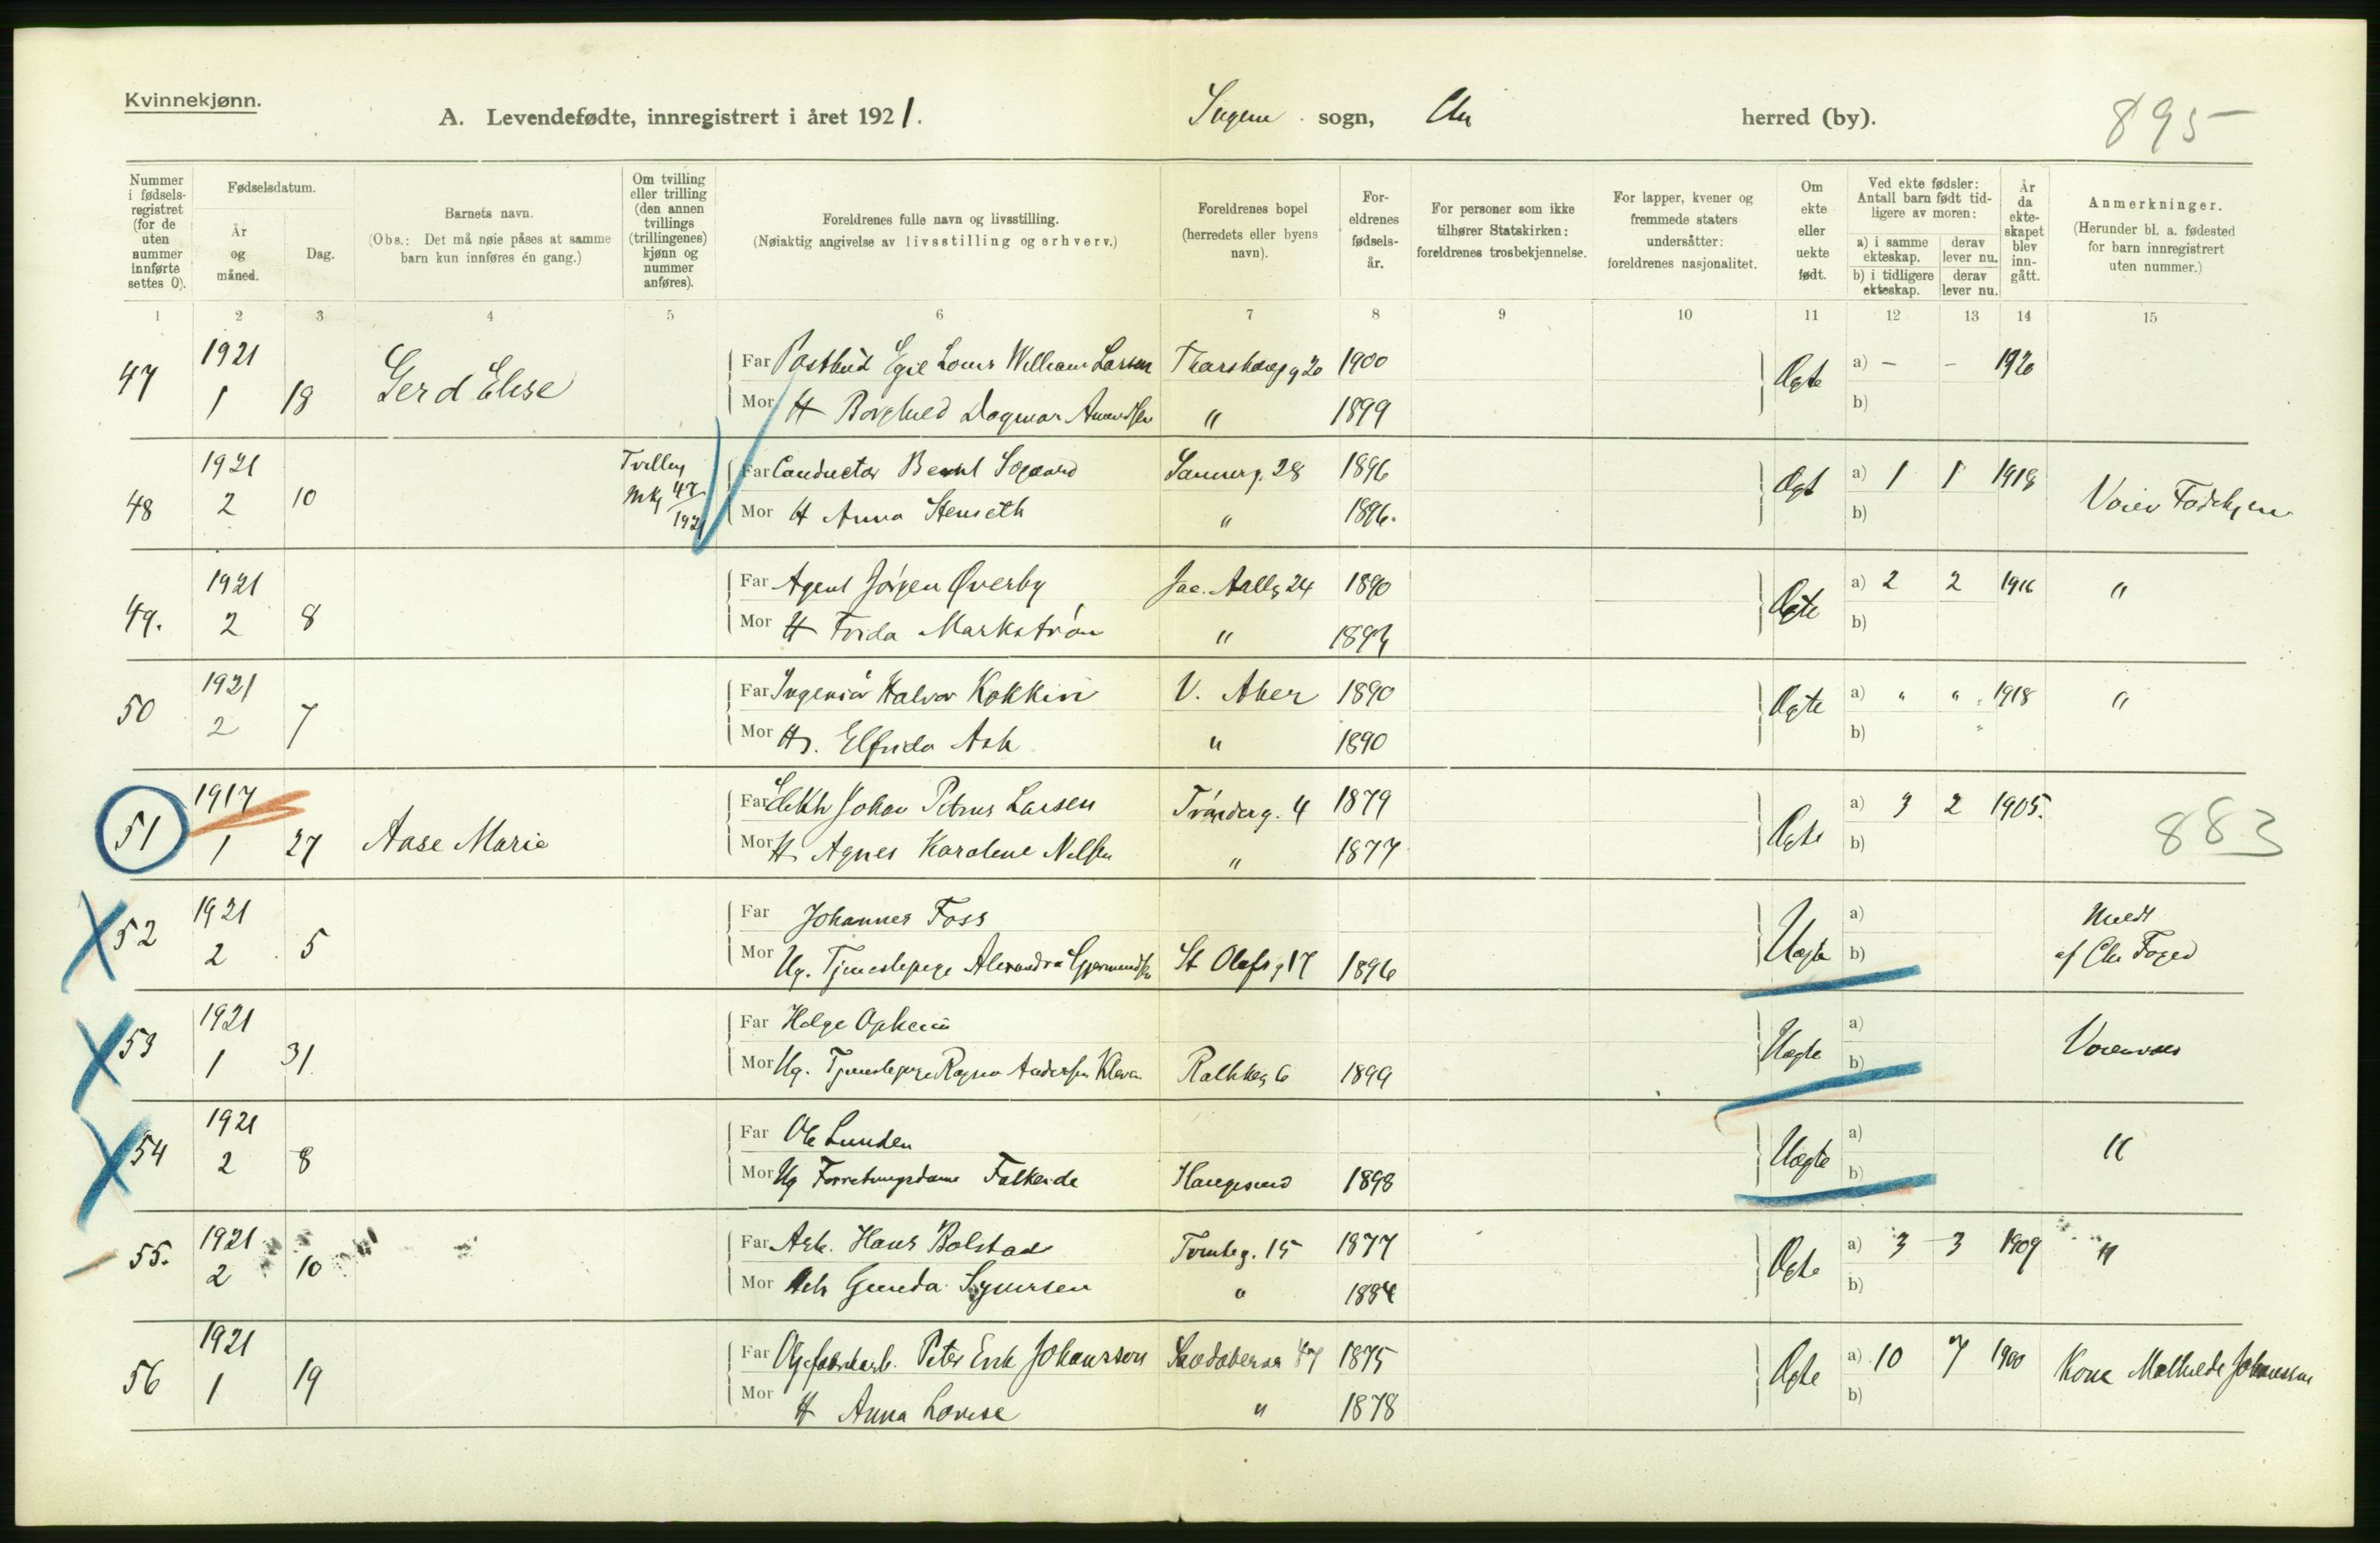 Kvinnekjønn.
A. Levendefødte, innregistrert i året 1921. sogn, herred (by).
895
Nummer i fødselsregistret (for de uten nummer innførte settes 0).
Fødselsdatum.
År og måned.
Dag.
Barnets navn.
(Obs.: Det må nøie påses at samme barn kun innføres én gang.)
Om tvilling eller trilling (den annen tvillings (trillingenes) kjønn og nummer anføres).
Foreldrenes fulle navn og livsstilling.
(Nøiaktig angivelse av livsstilling og erhverv.)
Foreldrenes bopel (herredets eller byens navn).
Foreldrenes fødselsår.
For personer som ikke tilhører Statskirken: foreldrenes trosbekjennelse.
For lapper, kvener og fremmede staters undersåtter: foreldrenes nasjonalitet.
Om ekte eller uekte født.
Ved ekte fødsler: Antall barn født tidligere av moren:
a) i samme ekteskap. derav lever nu.
b) i tidligere ekteskap. derav lever nu.
År da ekteskapet blev inngått.
Anmerkninger.
(Herunder bl. a. fødested for barn innregistrert uten nummer.)
1 2 3 4 5 6 7 8 9 10 11 12 13 14 15
47 1921 1 18 Gerd Elise
Far Postbud Egil Louis William Larsen 1900 Ægte a) - - 1920
Mor H Borghild Dagmar Amundsen " 1899 b)
48 1921 2 10 Tvilling Mk 47/1921
Far Conductor Bernt Sogaard Sannerg. 28 1896 Ægt a) 1 1 1919
Mor H Anna Stenseth " 1896. b)
49. 1921 2 8
Far Agent Jörgen Øverby Jac. Aallg 24 1890 Ægte a) 2 2 1916 "
Mor H Frida Markström " b)
50 1921 2 7
Far Ingeniör Halvor Kokkin V. Aker 1890 Ægte a) " " 1918 "
Mor H. Elfrida Ask " 1890 b)
51 1917 1 27 Aase Marie
Far Johan Petrus Larsen Trönderg. 4 1879 Ægte a) 3 2 1905. 883
Mor H Agnes Karoline Nilsen " 1877 b)
52 1921 2 5
Far Johannes Foss Uægte a) Meldt
Mor Ug. Tjenestepige Alexandra Gjermundsen St Olafsg 17 1896 b) af Chr Foged
53 1921 1 31
Far Helge Opheim Uægte a)
Mor Ug. Tjenestepige Ragna Andersen 1899 b)
54 1921 2 8
Far Ole Lunden Uægte a) "
Mor Ug Forretningsdame Falkeide Haugesund 1898 b)
55. 1921 2 10
Far Arb. Hans Bolstad 15 1877 Ægte a) 3 3 1909 "
Mor Gunda Syversen " b)
56 1921 1 19
Far Peter Erik Johansson 1875 Ægte a) 10 7 1900 Kone Mathilde Johanssen
Mor H Anna Lovise " 1878 b)